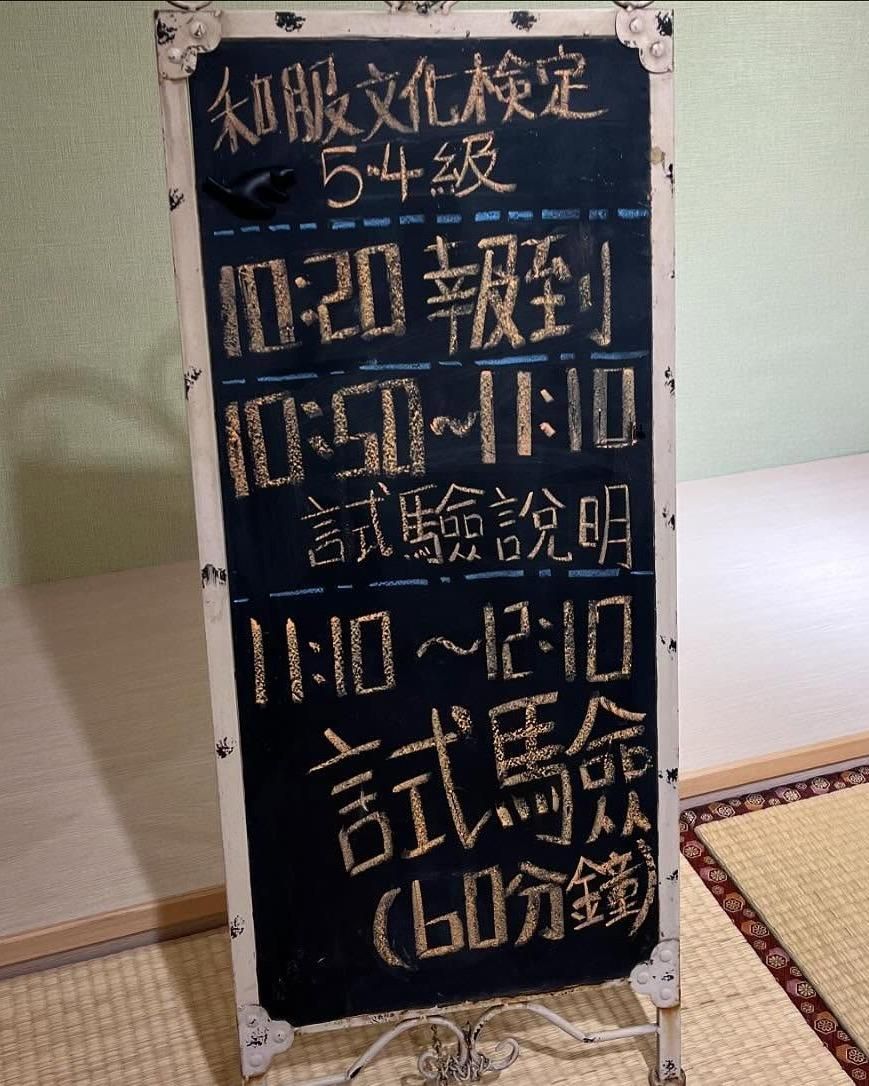 和服文化検定
5·4級
10:20 報到
10:50~11:10
試驗説明
11:10~12:10
試驗
(60分鐘)